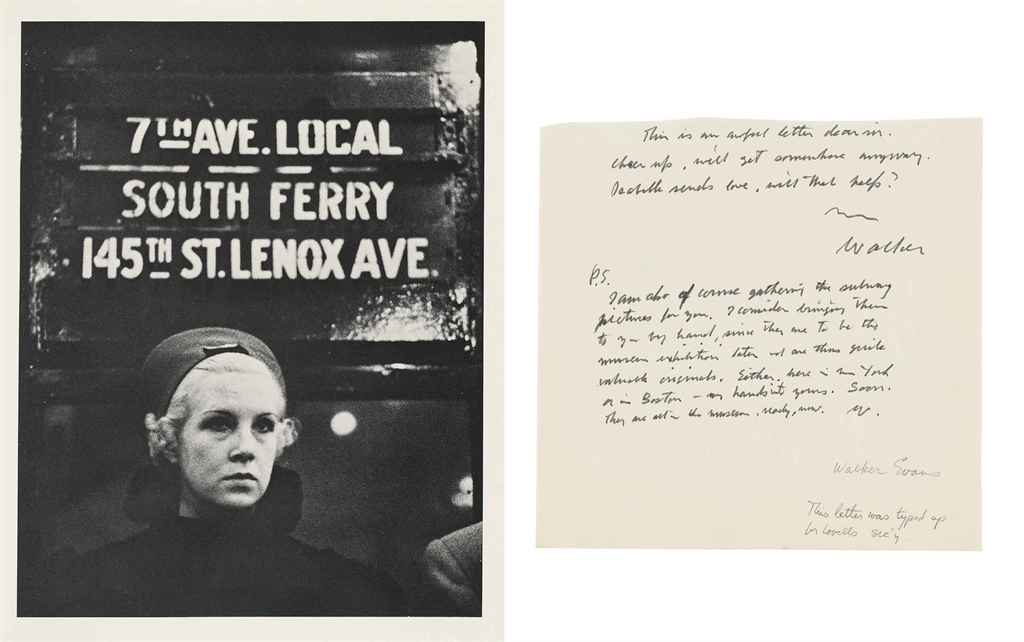 7TH AVE. LOCAL
SOUTH FERRY
145TH ST. LENOX AVE.
This is an awful letter dear sir.
Cheer up, will get somewhere anyway.
Isabelle sends love, will that help?
Walker
P.S.
I am also of course gathering the subway
pictures for you. I consider bringing them
to you by hand, since they are to be the
museum exhibition later and are thus quite
valuable originals. Either here in New York
or in Boston – my hands into yours. Soon.
They are all in the museum, ready, now. W.
Walker Evans
This letter was typed up
by Lovells sec'y